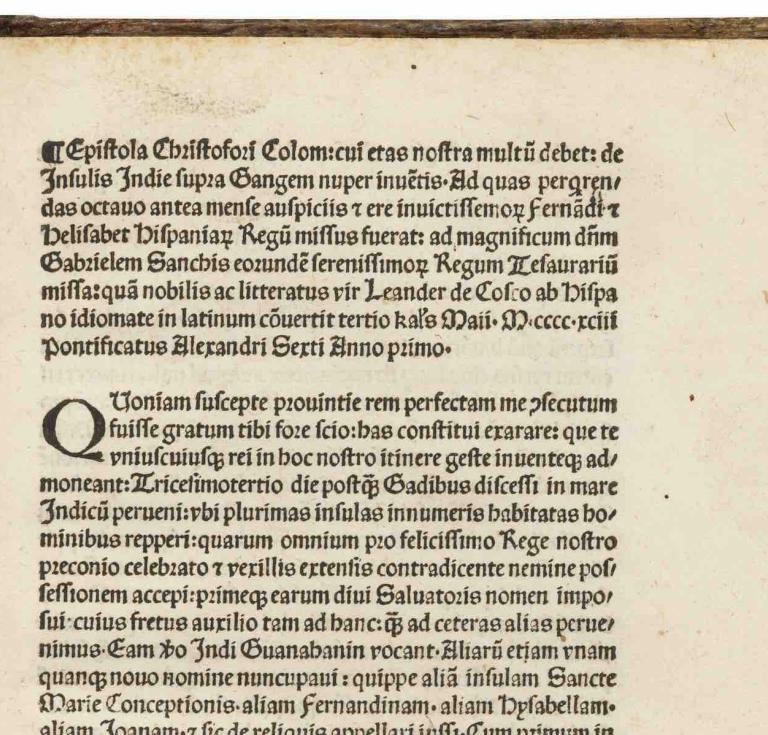 ¶Epistola Christofori Colom: cui etas nostra multū debet: de
Insulis Indie supra Gangem nuper inuētis. Ad quas perqren/
das octauo antea mense auspiciis ⁊ ere inuictissemoꝝ Fernādi ⁊
Helisabet Hispaniaꝝ Regū missus fuerat: ad magnificum dn̄m
Gabrielem Sanchis eorundē serenissimoꝝ Regum Tesaurariū
missa: quā nobilis ac litteratus vir Leander de Cosco ab Hispa
no idiomate in latinum cōuertit tertio kal's Maii. M.cccc.xciii
Pontificatus Alexandri Sexti Anno primo.
QUoniam suscepte prouintie rem perfectam me ꝯsecutum
fuisse gratum tibi fore scio: has constitui exarare: que te
vniuscuiusqꝫ rei in hoc nostro itinere geste inuenteqꝫ ad/
moneant: Tricesimotertio die postqꝫ̄ Gadibus discessi in mare
Indicū perueni: vbi plurimas insulas innumeris habitatas ho/
minibus repperi: quarum omnium pro felicissimo Rege nostro
preconio celebrato ⁊ vexillis extensis contradicente nemine pos/
sessionem accepi: primeqꝫ earum diui Saluatoris nomen impo/
sui: cuius fretus auxilio tam ad hanc: qꝫ̄ ad ceteras alias perue/
nimus. Eam ꝟo Indi Guanahanin vocant. Aliarū etiam vnam
quanqꝫ nouo nomine nuncupaui: quippe aliā insulam Sancte
Marie Conceptionis. aliam Fernandinam. aliam Hysabellam.
aliam Joanam. ⁊ sic de reliquis appellari iussi. Cum primum in